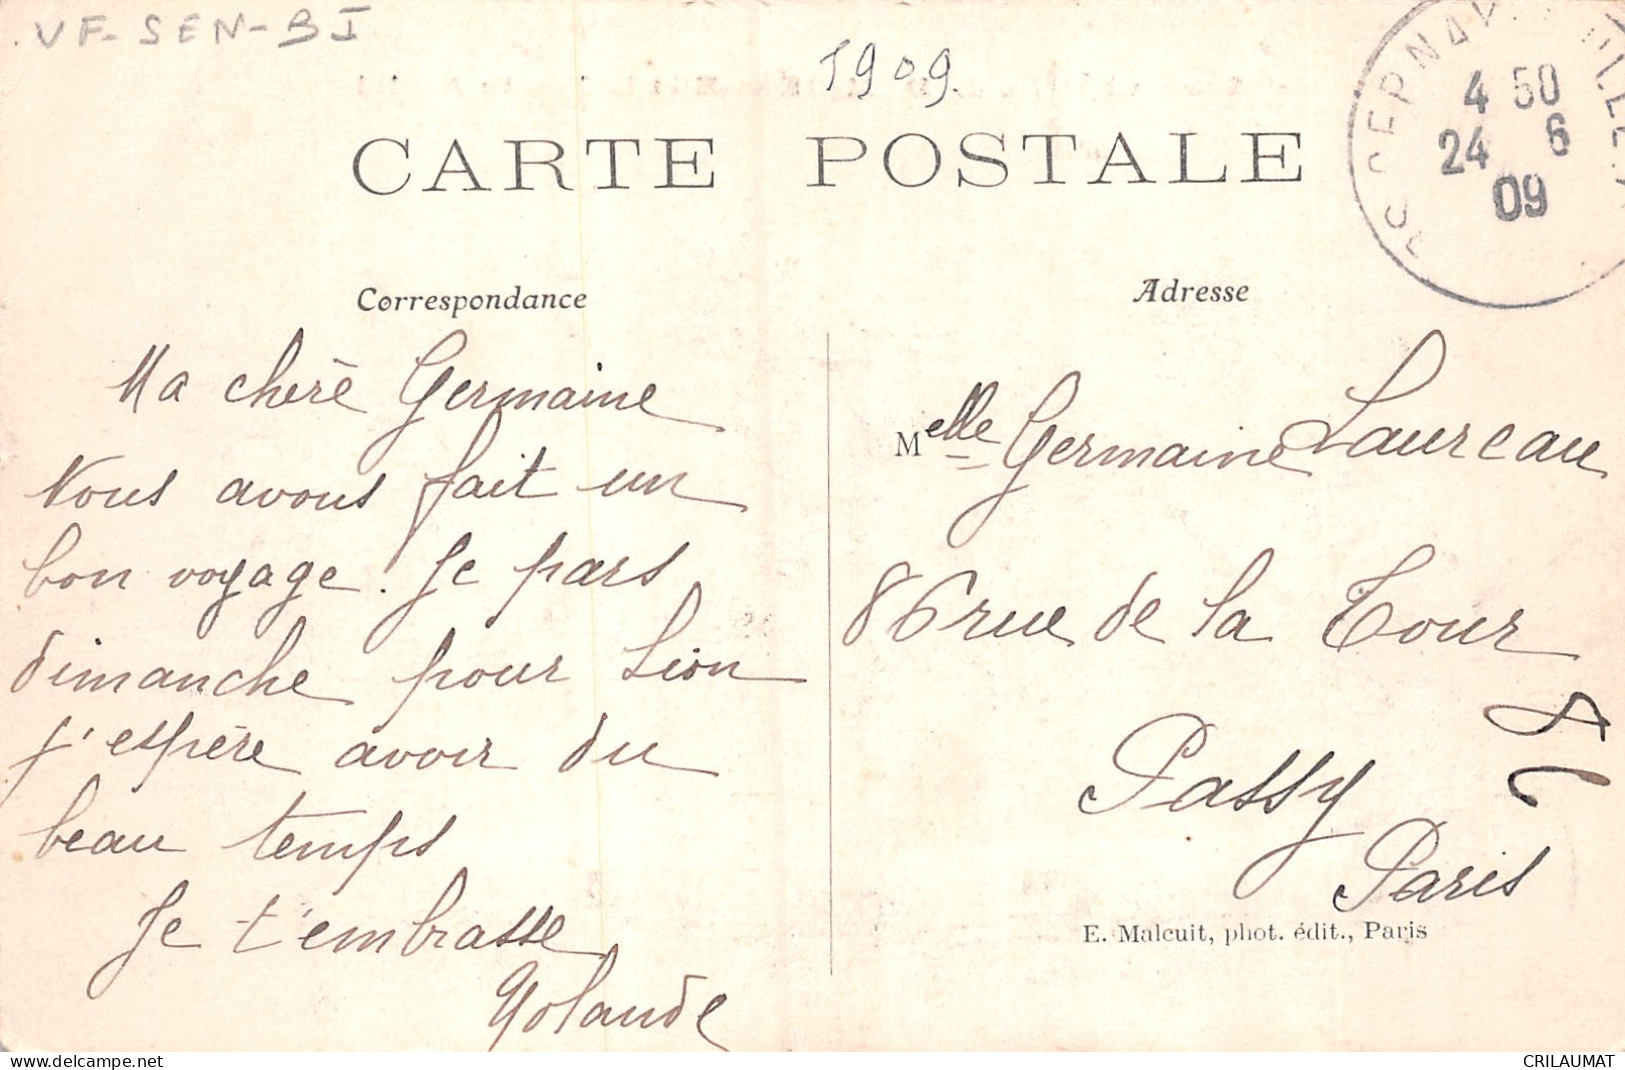 VF-SEN-BI
1909.
CARTE POSTALE
4 50
24 6
09
Correspondance
Ma cherè Germaine
Nous avons fait un
bon voyage. Je pars
dimanche pour Lion
j'espère avoir du
beau temps
Je t'embrasse
Yolande
Adresse
Melle Germaine Laureau
86 rue de la Tour
Passy
Paris
E. Malcuit, phot. édit., Paris
delcampe.net
CRILAUMAT